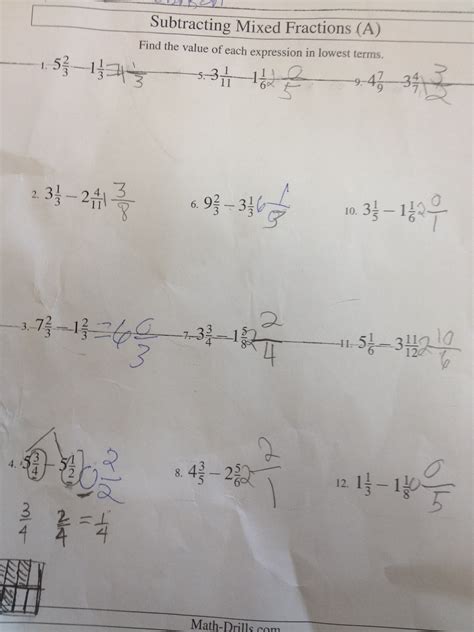 Subtracting Mixed Fractions (A)
Find the value of each expression in lowest terms.
1. 5 2/3 − 1 1/3 = 4 1/3
5. 3 1/11 − 1 1/6 2 0/5
9. 4 7/9 − 3 4/7 1 3/2
2. 3 1/3 − 2 4/11 1 3/8
6. 9 2/3 − 3 1/3 6 1/3
10. 3 1/5 − 1 1/6 2 0/1
3. 7 2/3 − 1 2/3 = 6 0/3
7. 3 3/4 − 1 5/8 2 2/4
11. 5 1/6 − 3 11/12 2 10/6
4. 5 3/4 − 5 1/2 0 2/2
8. 4 3/5 − 2 5/6 2 2/1
12. 1 1/3 − 1 1/8 0 0/5
3/4 2/4 = 1/4
Math-Drills.com